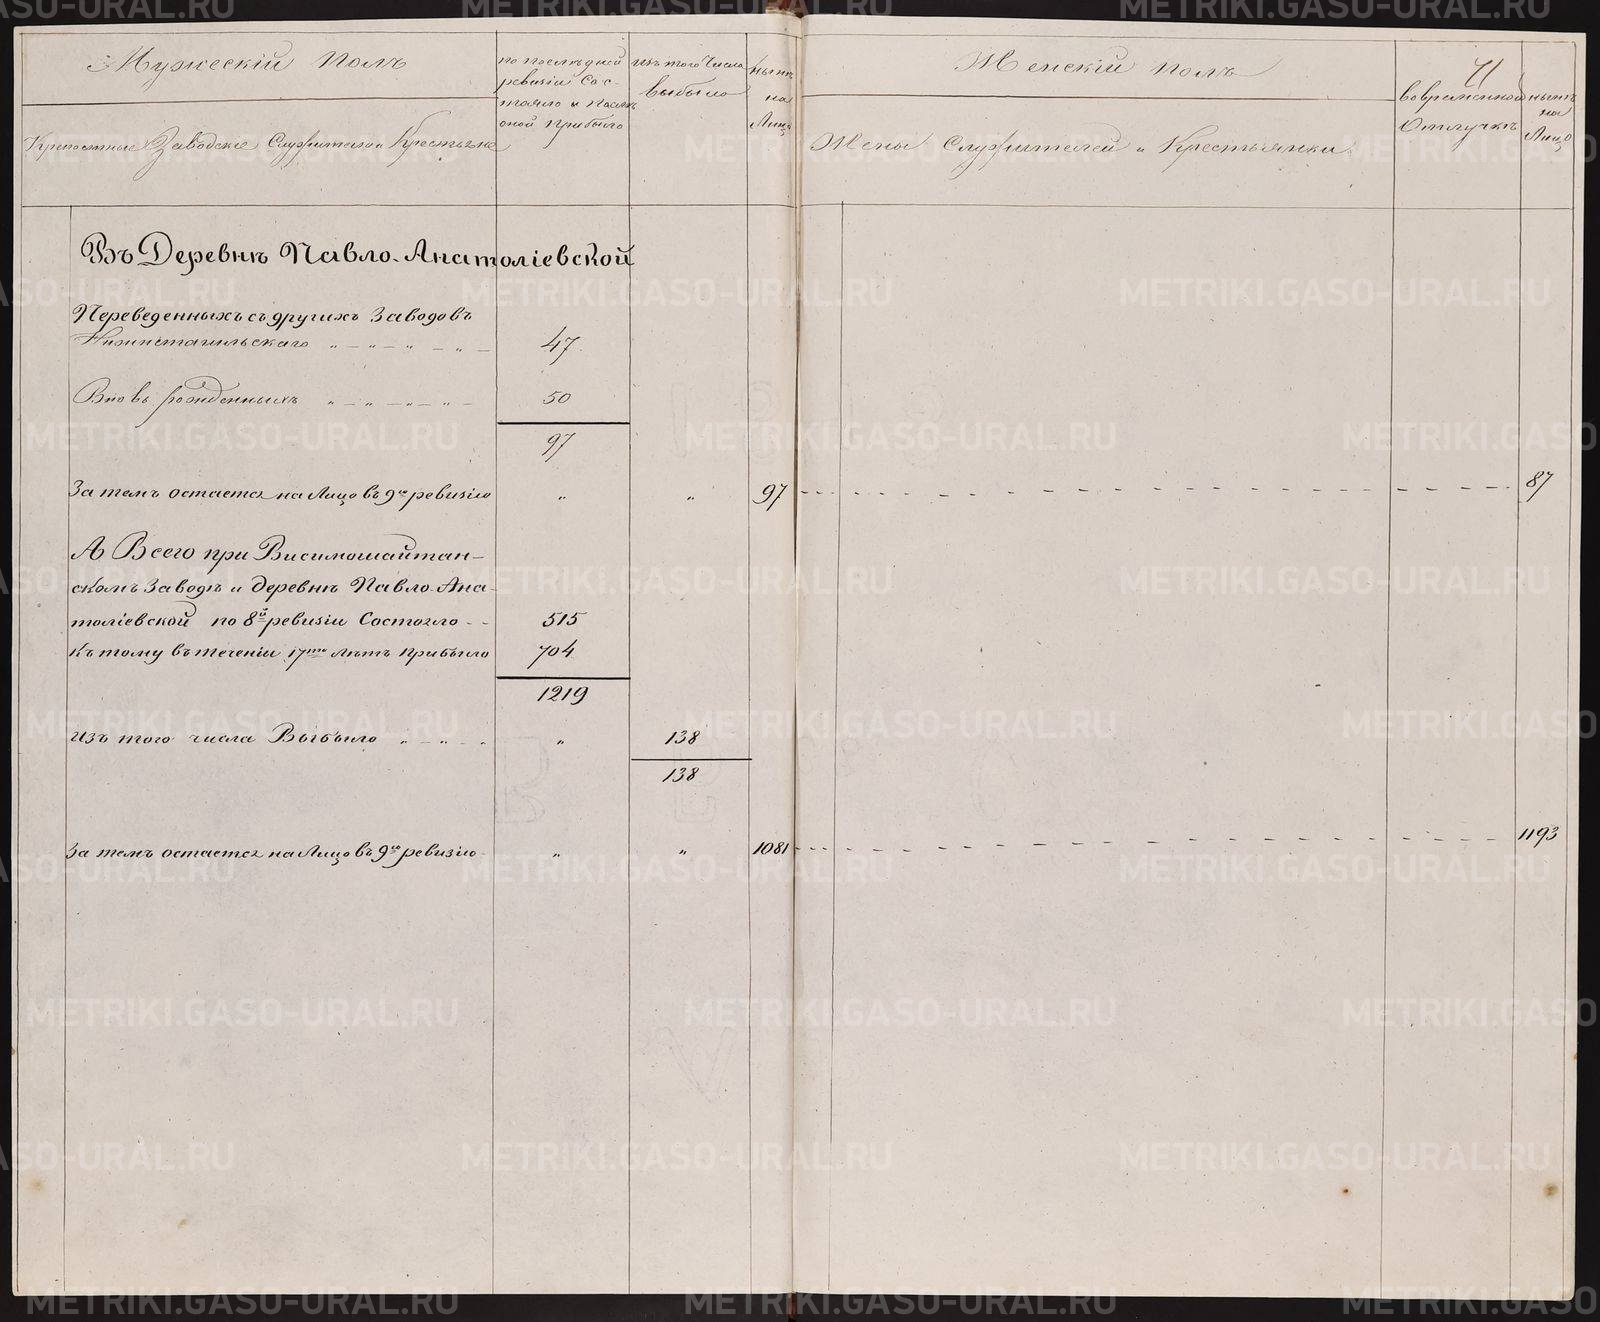 Мужескій Полъ
по последней ревизіи Состояло и после оной Прибыло
изъ того Числа выбыло
ныне на Лицо
Крепостные Заводскіе Служители и Крестьяне
Женскій Полъ
71
во временной Отлучке
ныне на Лицо
Жены Служителей и Крестьянки
Въ Деревнѣ Павло-Анатоліевской
Переведенныхъ съ другихъ Заводовъ
Нижнетагильскаго „ – „ – „ – „ – 47
Вновь рожденныхъ „ – „ – „ – „ – 50
97
За темъ остается на Лицо въ 9ю ревизію „ „ 97 87
А Всего при Висимошайтан-
скомъ Заводѣ и деревнѣ Павло-Ана-
толіевской по 8й ревизіи Состояло - - 515
Къ тому въ теченіи 17ти лѣтъ прибыло 704
1219
Изъ того числа Выбыло „ – „ – „ „ 138
138
За темъ остается на Лицо въ 9ю ревизію „ „ 1081 1193
METRIKI.GASO-URAL.RU